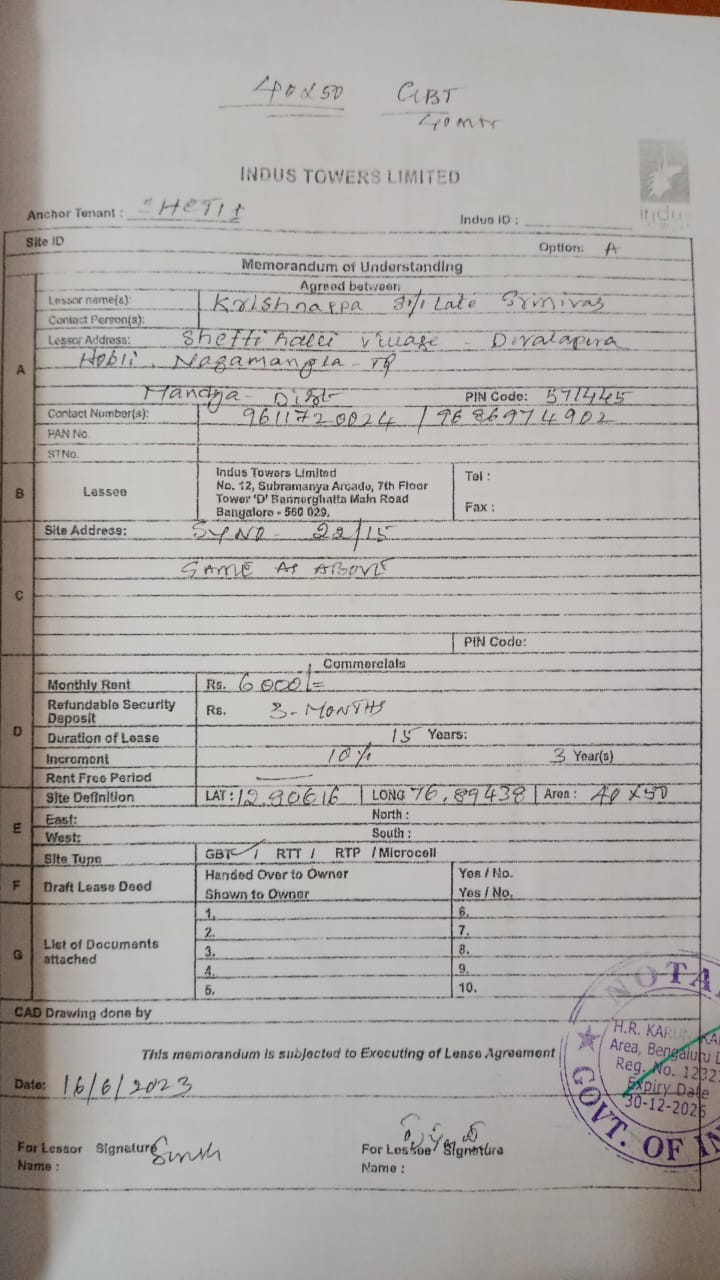 40x50 GBT
40mtr
INDUS TOWERS LIMITED
indus
Anchor Tenant :
Indus ID :
Site ID
Option: A
Memorandum of Understanding
Agreed between
Lessor name(s): Krishnappa S/o Late Srinivas
Contact Person(s):
Lessor Address: Shettihalli village - Devalapura
Hobli, Nagamangla - TQ
Mandya - Dist PIN Code: 571445
Contact Number(s): 9611720024 / 9686974902
A
PAN No
STNo.
B Lessee
Indus Towers Limited
No. 12, Subramanya Arcade, 7th Floor
Tower 'D' Bannerghatta Main Road
Bangalore - 560 029.
Tel :
Fax :
C
Site Address: SY NO - 22/15
SAME AS ABOVE
PIN Code:
Commercials
D
Monthly Rent Rs. 6000/=
Refundable Security Deposit Rs. 3-MONTHS
Duration of Lease 15 Years:
Increment 10% 3 Year(s)
Rent Free Period —
E
Site Definition LAT: 12.90616 LONG 76.89438 Area: 40x50
East: North :
West: South :
Site Type GBT / RTT / RTP / Microcell
F Draft Lease Deed
Handed Over to Owner Yes / No.
Shown to Owner Yes / No.
G List of Documents attached
1. 6.
2. 7.
3. 8.
4. 9.
5. 10.
CAD Drawing done by
This memorandum is subjected to Executing of Lease Agreement
Date: 16/6/2023
For Lessor Signature
Name :
For Lessee Signature
Name :
NOTA
H.R. KARU
Area, Bengaluru
Reg. No. 1232
Expiry Date
30-12-2025
GOVT. OF IN